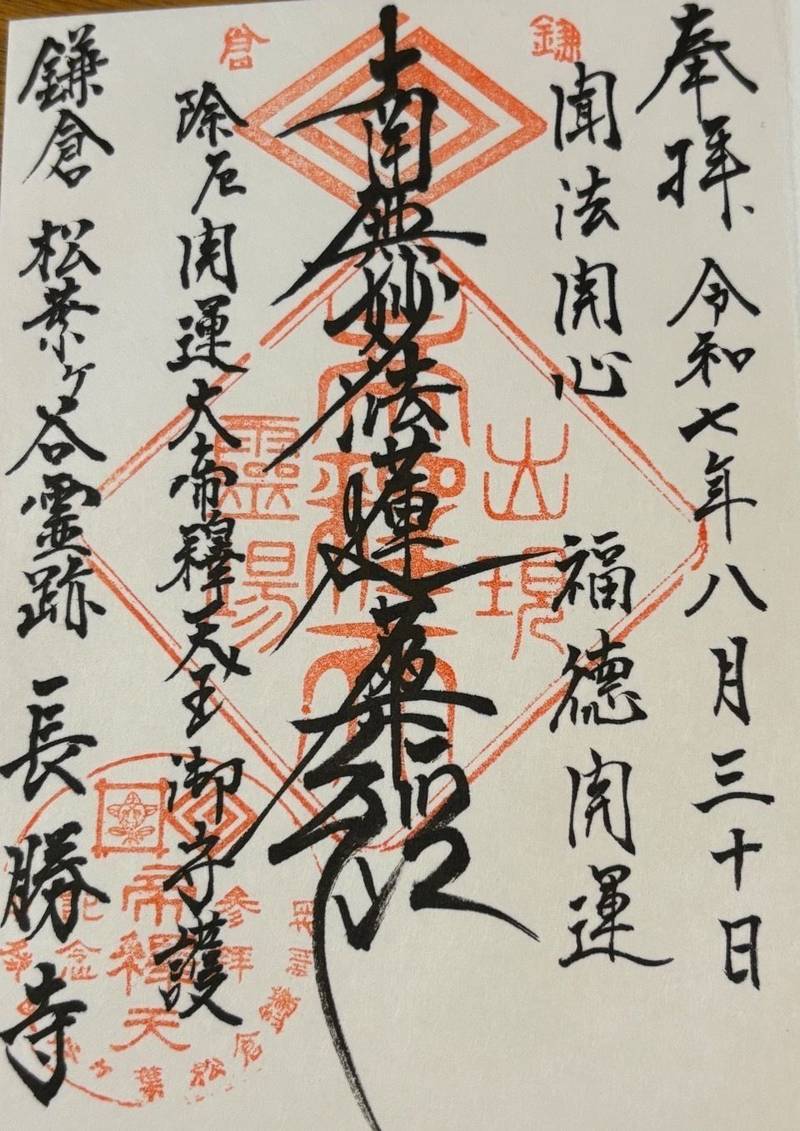 奉拝 令和七年八月三十日
聞法開心 福徳開運
南無妙法蓮華経
除厄開運大帝釋天王御守護
鎌倉 松葉ヶ谷霊跡 長勝寺
鎌倉
出現
帝釋天
霊場
参拝
帝釋天
記念